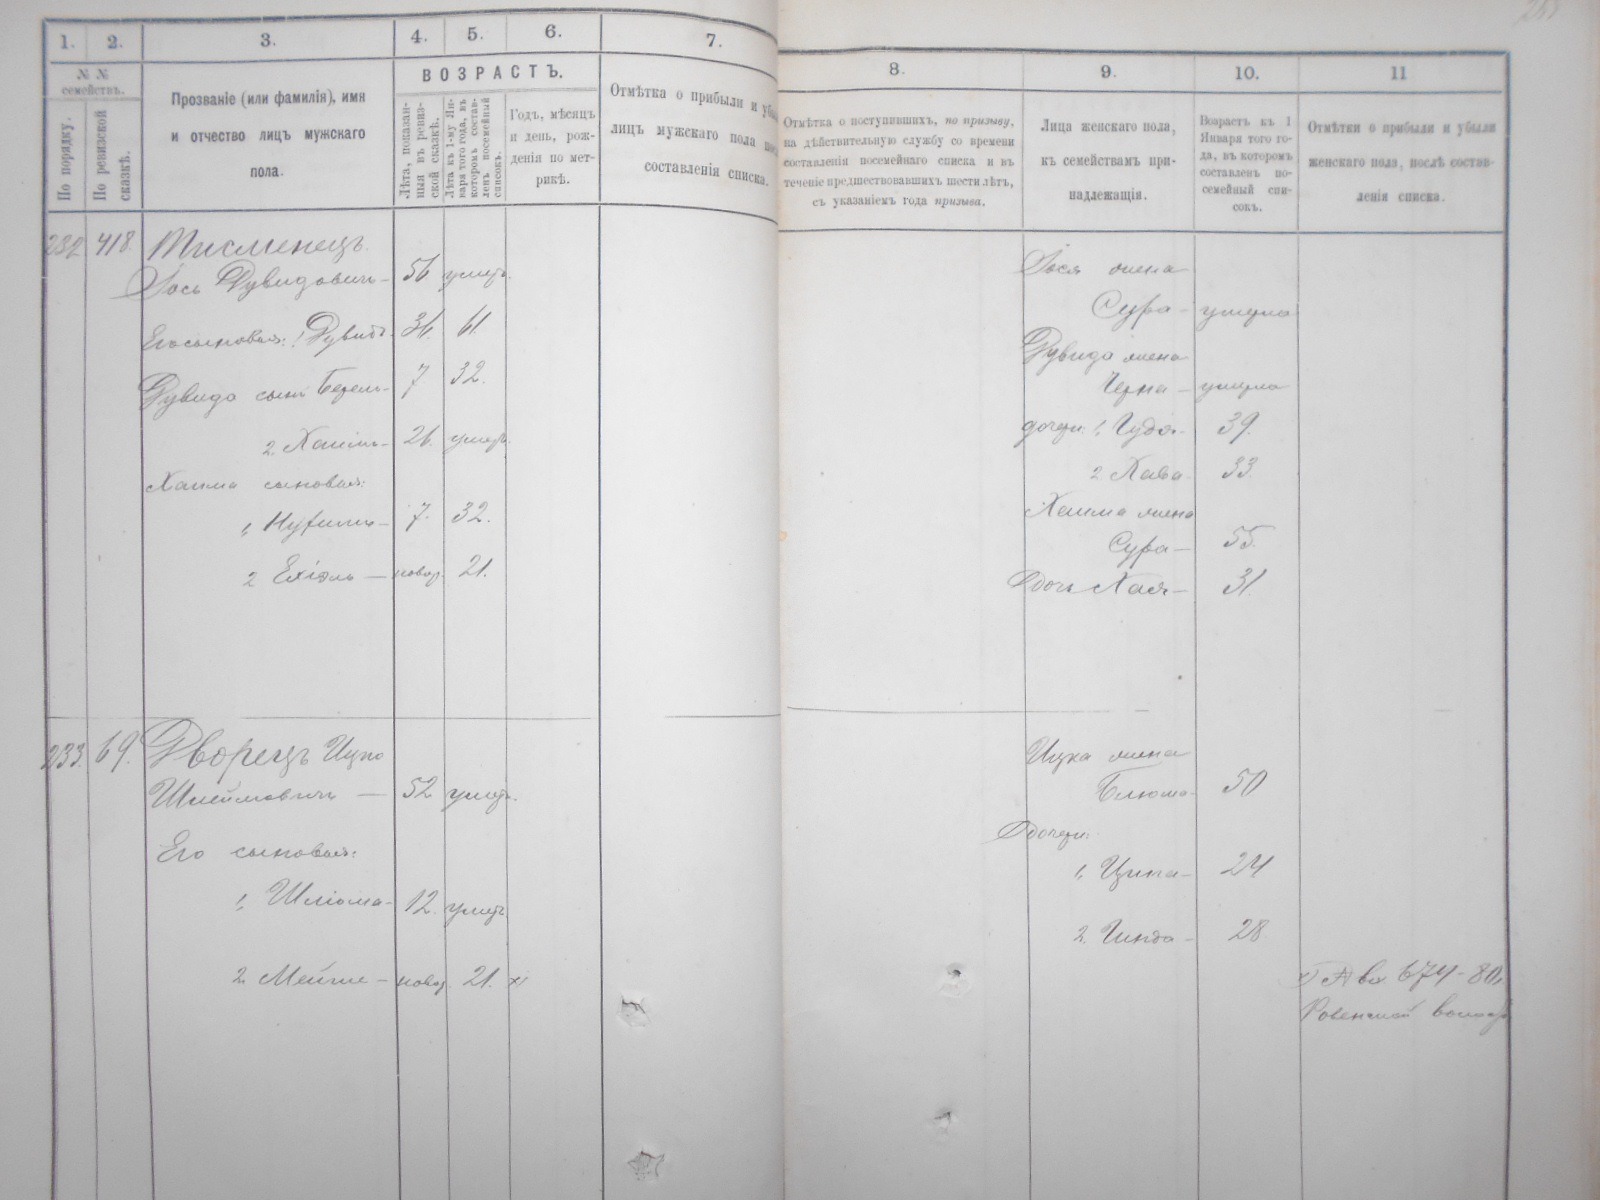 1. 2. 3. 4. 5. 6. 7.
№ №
семействъ.
По порядку.
По ревизской
сказкѣ.
Прозваніе (или фамилія), имя
и отчество лицъ мужскаго
пола.
ВОЗРАСТЪ.
Лѣта, показан-
ныя въ ревиз-
ской сказкѣ.
Лѣта къ 1-му Ян-
варя того года, въ
которомъ состав-
ленъ посемейный
списокъ.
Годъ, мѣсяцъ
и день, рож-
денія по мет-
рикѣ.
Отмѣтка о прибыли и убы
лицъ мужскаго пола пос
составленія списка.
232 418. Тисменецъ
Іось Дувидовичъ - 56 умеръ.
Его сыновья: 1 Дувидъ 36. 61.
Дувида сынъ Берель - 7 32.
2. Хаимъ - 26. умеръ.
Хаима сыновья:
1, - 7. 32.
2 Ехіэль — новор. 21.
233. 69. Дворецъ Ицко
Шлеймовичъ — 52 умеръ.
Его сыновья:
1, Шліома - 12. умеръ
2. - новор. 21. х)
8. 9. 10. 11
Отмѣтка о поступившихъ, по призыву,
на дѣйствительную службу со времени
составленія посемейнаго списка и въ
теченіе предшествовавшихъ шести лѣтъ,
съ указаніемъ года призыва.
Лица женскаго пола,
къ семействамъ при-
надлежащія.
Возрастъ къ 1
Января того го-
да, въ которомъ
составленъ по-
семейный спи-
сокъ.
Отмѣтки о прибыли и убыли
женскаго пола, послѣ состав-
ленія списка.
Іося жена
Сура - умерла
Дувида жена
Черна - умерла
дочери: 1, - 39.
2 Хава - 33.
Хаима жена
Сура - 55.
дочь Хая - 31.
Ицка жена
Блюма - 50
дочери:
1, Ципа - 24
2. Гинда - 28
х) 674-80,
Ровенской